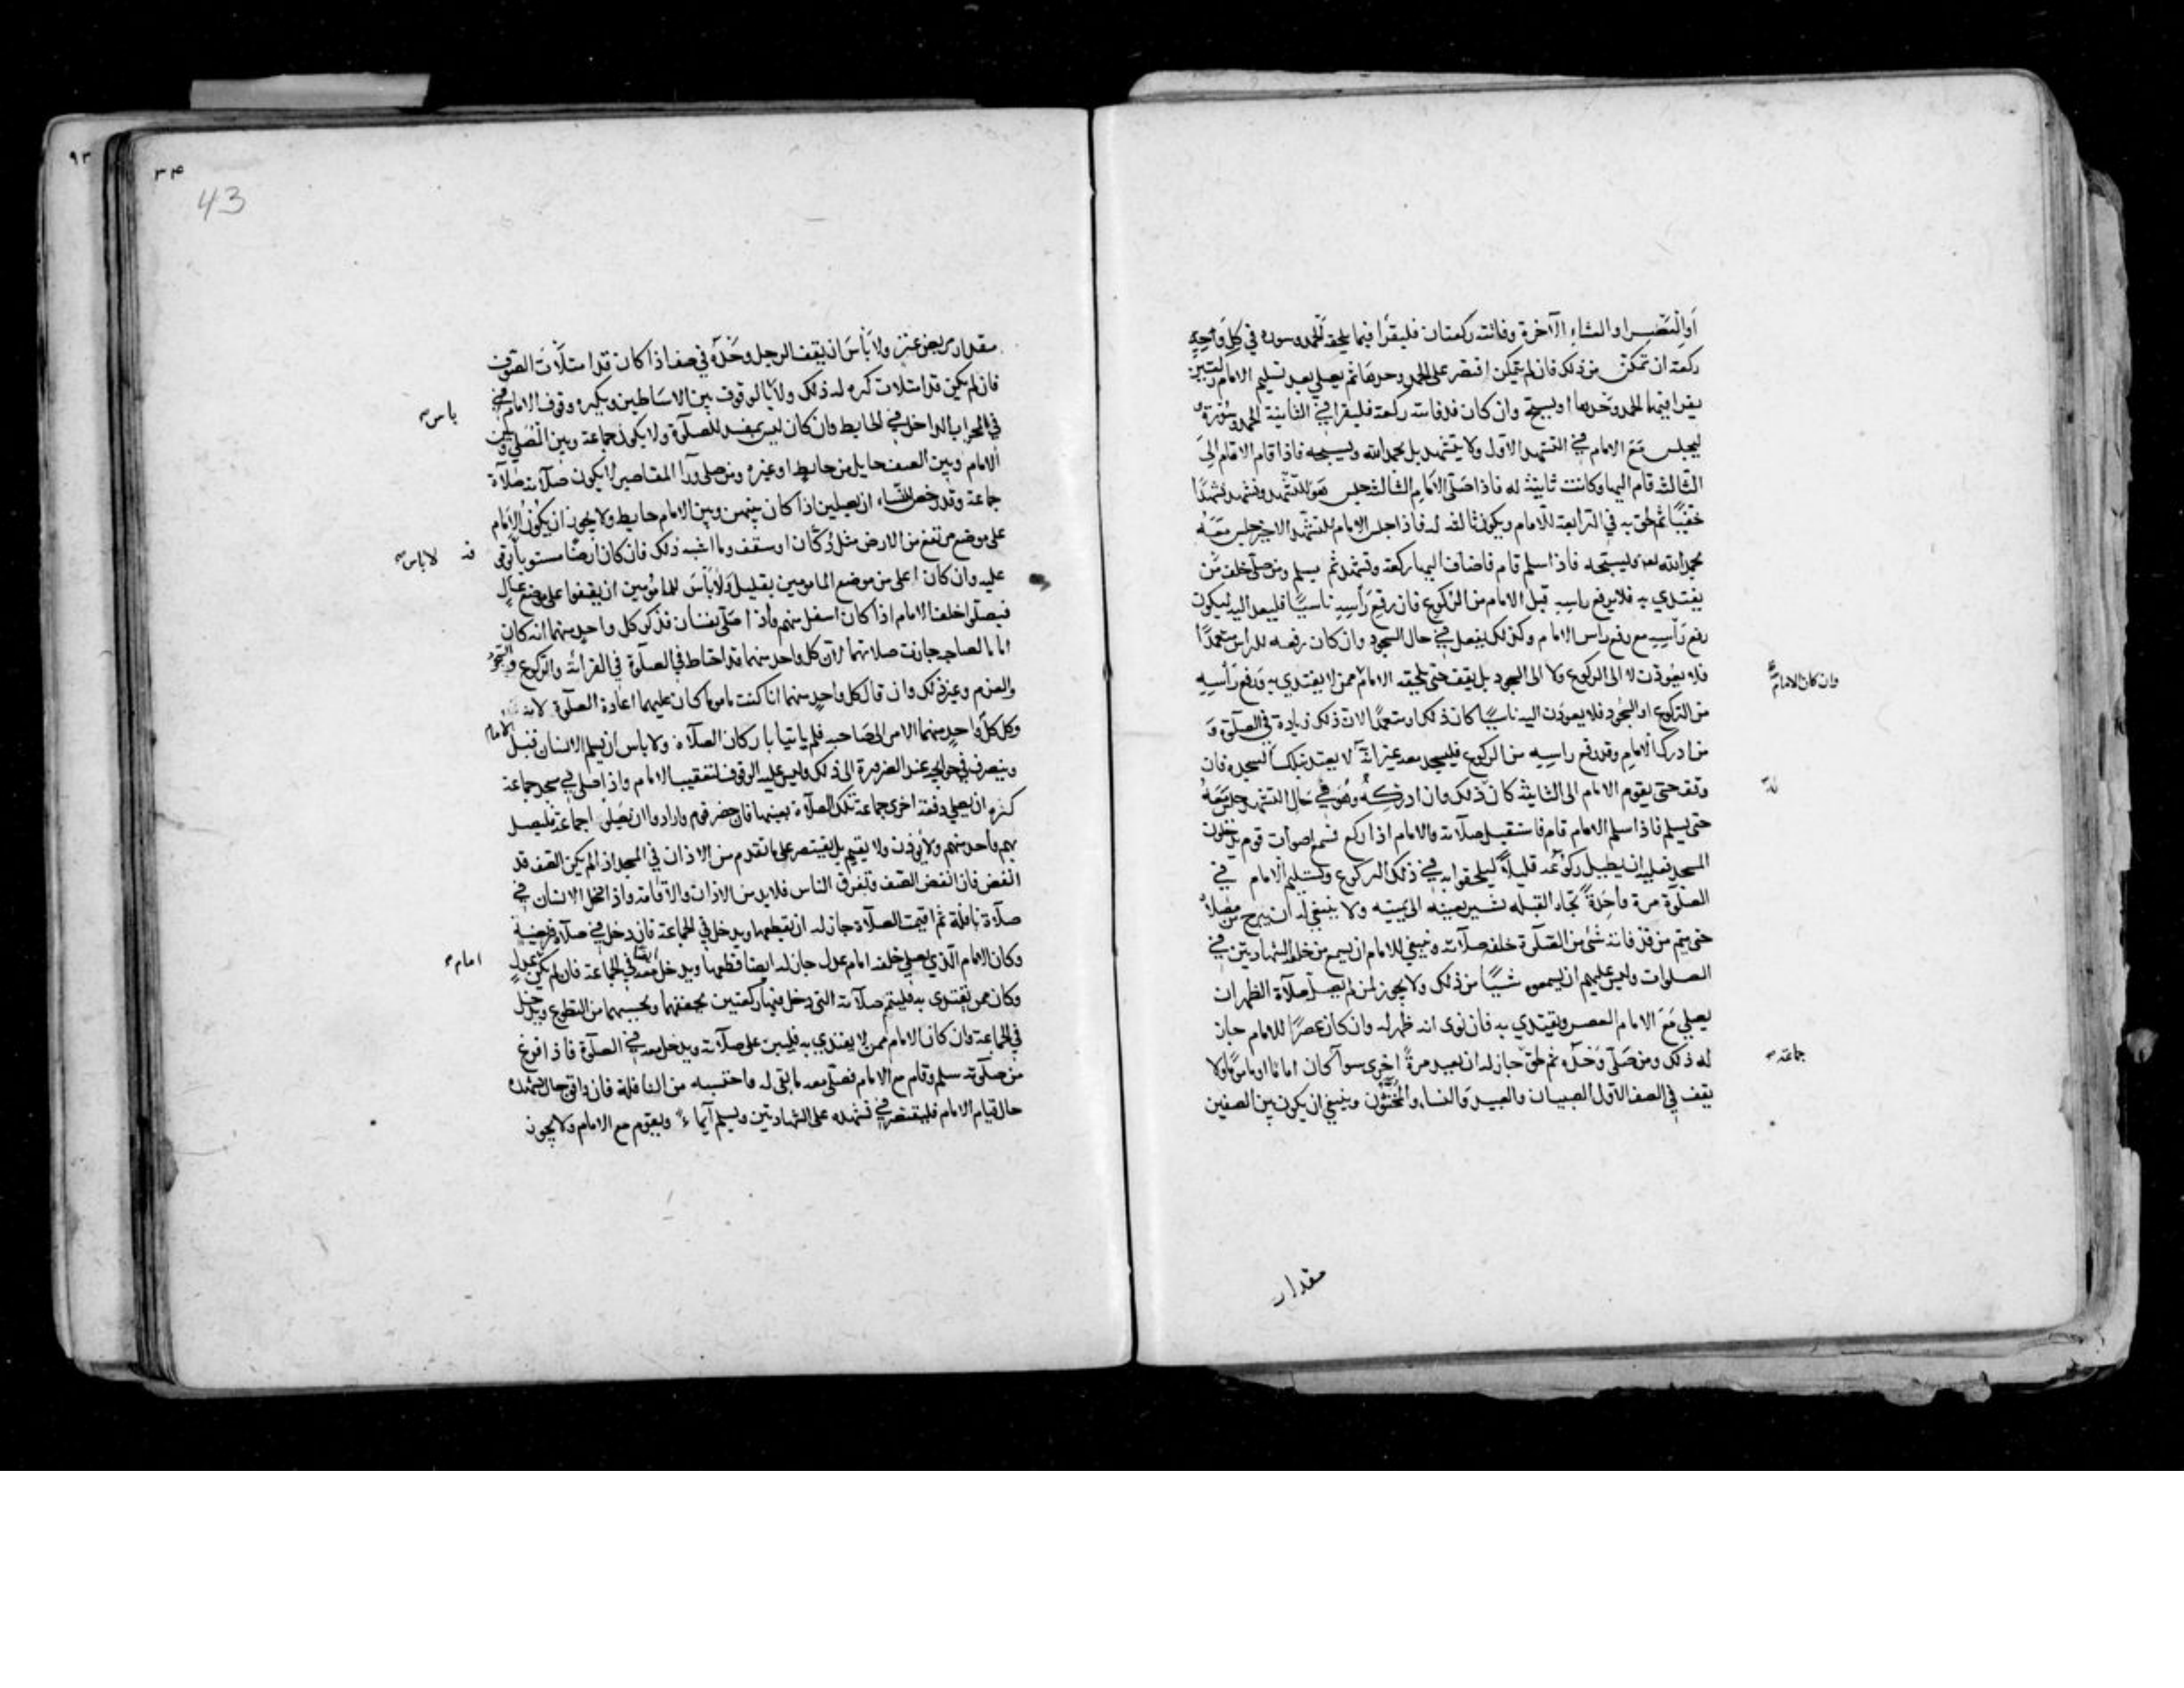 او العصر او العشاء الآخرة وفاتته ركعتان فليقرا فيما يلحقه الحمد وسورة في كل واحدة
ركعة ان تمكن من ذلك فان لم يتمكن اقتصر على الحمد وحدها ثم يصلي بعد تسليم الامام ركعتين
يقرا فيهما الحمد وحدها او يسبح وان كان قد فاتته ركعة فليقرا في الثانية الحمد وسورة و
ليجلس مع الامام في التشهد الاول ولا يتشهد بل يحمد الله ويسبحه فاذا قام الامام الى
الثالثة قام اليها وكانت ثانية له فاذا صلى الامام الثالثة جلس هو للتشهد وتشهد تشهدا
خفيفا ثم لحق به في الرابعة للامام ويكون ثالثة له فاذا جلس الامام للتشهد الاخير جلس معه
يحمد الله تعالى ويسبحه فاذا سلم قام فاضاف اليها ركعة وتشهد ثم يسلم ومن صلى خلف من
يقتدي به فلا يرفع راسه قبل الامام من الركوع فان رفع رأسه ناسيا فليعد اليه ليكون
رفع رأسه مع رفع راس الامام وكذلك يفعل في حال السجود وان كان رفعه للرأس متعمدا
فلا يعودن لا الى الركوع ولا الى السجود بل يقف حتى يلحقه الامام ممن لا يقتدي به ورفع رأسه
وان كان الامام
من الركوع او السجود فلا يعودن اليه ناسيا كان ذلك او متعمدا لان ذلك زيادة في الصلوة و
من ادرك الامام وقد رفع راسه من الركوع فليسجد معه غير انه لا يعتد بتلك السجدة فان
وقف حتى يقوم الامام الى الثانية كان ذلك وان ادركه وهو في حال التشهد جلس معه
حتى يسلم فاذا سلم الامام قام فاستقبل صلاته والامام اذا ركع فسمع اصوات قوم يدخلون
المسجد فعليه ان يطيل ركوعه قليلا ليلحقوا به في ذلك الركوع وتسليم الامام في
الصلوة مرة واحدة تجاه القبله يشير بعينه الى يمينه ولا ينبغي له ان يبرح من مصلاه
حتى يتم من قد فاته شئ من الصلوة خلفه صلاته وينبغي للامام ان يسمع من خلفه الشهادتين في
الصلوات وليس عليهم ان يسمعوه شيئا من ذلك ولا يجوز لمن لم يصل صلاة الظهر ان
يصلي مع الامام العصر ويقتدي به فان نوى انه ظهر له وان كان عصرا للامام جاز
له ذلك ومن صلى وحده ثم لحق جاز له ان يعيد مرة اخرى سوآ كان اماما او ماموما ولا
جماعة
يقف في الصف الاول الصبيان والعبيد والنساء والمخنثون وينبغي ان يكون بين الصفين
مقدار
٣٤
43
٩٣
مقدار مربض عنز ولا بأس ان يقف الرجل وحده في صف اذا كان قد امتلأت الصفوف
فان لم يكن قد امتلات كره له ذلك ولا بالوقوف بين الاساطين ويكره وقوف الامام في
باس
في المحراب الداخل في الحايط وان كان ليس بمفسد للصلوة ولا يكون جماعة وبين المصلي وبين
الامام وبين الصف حايل من حايط او غيره ومن صلى ورآ المقاصير لا يكون صلاته صلاة
جماعة وقد رخص للنساء ان يصلين اذا كان بينهن وبين الامام حايط ولا يجوز ان يكون الامام
على موضع مرتفع من الارض مثل دكان او سقف وما اشبه ذلك فان كان ارضا مستويا وقف
لا باس
عليه وان كان اعلى من موضع المامومين بقليل ولا بأس للمأمومين ان يقفوا على موضع عال
فيصلى خلف الامام اذا كان اسفل منهم واذا صلى نفسان فذكر كل واحد منهما انه كان
اماما لصاحبه جازت صلاتهما لان كل واحد منهما قد احتاط في الصلوة في القرائة والركوع والسجود
والعزم وغير ذلك وان قال كل واحد منهما انا كنت ماموما كان عليهما اعادة الصلوة لانه
وكل كل واحد منهما الامر الى صاحبه فلم ياتيا باركان الصلاة ولا باس ان يسلم الانسان قبل الامام
وينصرف في حوائجه عند الضرورة الى ذلك وليس عليه الوقوف لتعقيب الامام واذا صلي في مسجد جماعة
كره ان يصلي دفعة اخرى جماعة تلك الصلاة بعينها فان حضر قوم وارادوا ان يصلوا جماعة فليصل
بهم واحد منهم ولا يؤذن ولا يقيم بل يقتصر على ما تقدم من الاذان في المسجد اذا لم يكن الصف قد
انفض فان انفض الصف وتفرق الناس فلا بد من الاذان والاقامة واذا دخل الانسان في
صلاة نافلة ثم اقيمت الصلاة جاز له ان يقطعها ويدخل في الجماعة فان دخل في صلاة فريضة
وكان الامام الذي يصلي خلفه امام عدل جاز له ايضا قطعها ويدخل معه في الجماعة فان لم يكن عدل
امام
وكان ممن يقتدي به فليتم صلاته التي دخل فيها ركعتين يخففهما ويحسبهما من التطوع ويدخل
في الجماعة وان كان الامام ممن لا يقتدي به فليبن على صلاته ويدخل معه في الصلوة فاذا فرغ
من صلوته سلم وقام مع الامام فصلى معه ما بقي له واحتسبه من النافلة فان وافق حال تشهده
حال قيام الامام فليقتصر في تشهده على الشهادتين ويسلم ايماء ويقوم مع الامام ولا يجوز